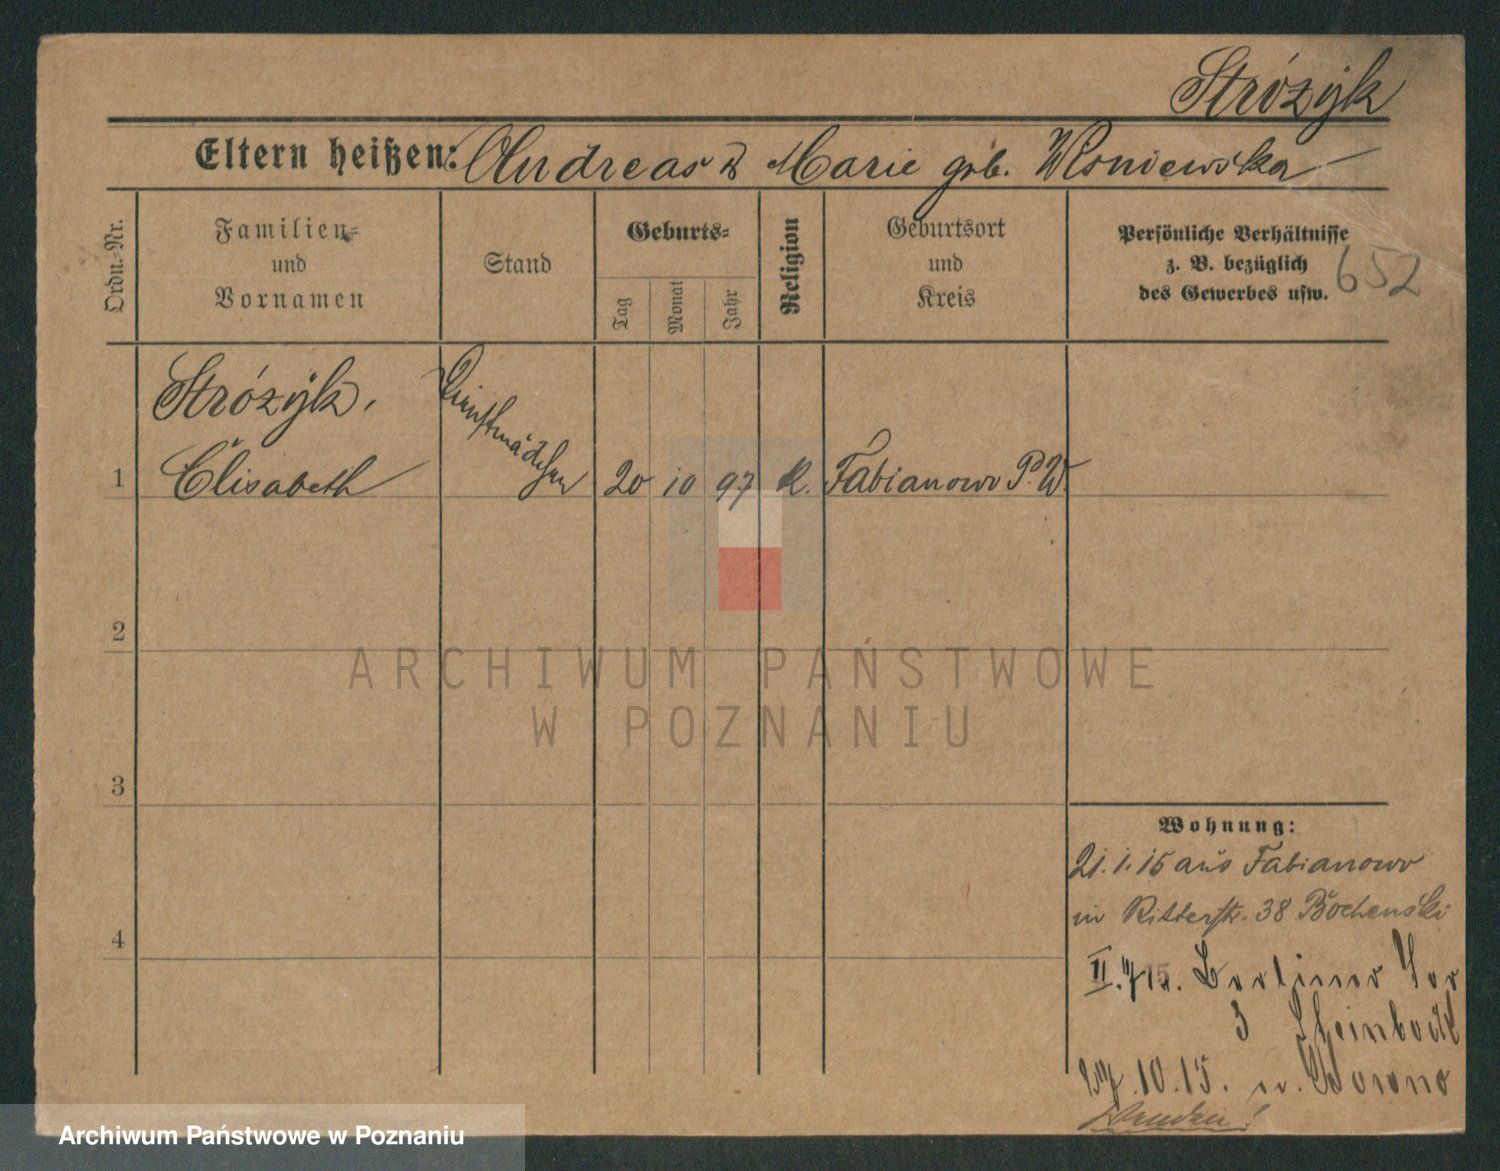 Stróżyk
Eltern heißen: Andreas & Marie geb. Woniewska
Ordn.-Nr.
Familien-
und
Vornamen
Stand
Geburts-
Tag
Monat
Jahr
Religion
Geburtsort
und
Kreis
Persönliche Verhältnisse
z. B. bezüglich
des Gewerbes usw.
652
Stróżyk,
Dienstmädchen
1 Elisabeth 20 10 97 K. Fabianowo P. W.
2
3
4
Wohnung:
21.1.15 aus Fabianowo
in Ritterstr. 38 Bochenski
II. 15. Berliner Tor
3 Steinbock
27.10.15. n.
ARCHIWUM PAŃSTWOWE
W POZNANIU
Archiwum Państwowe w Poznaniu